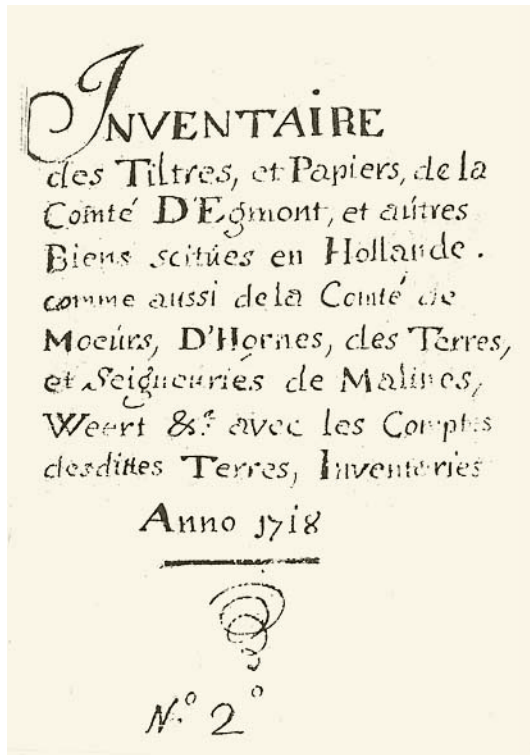 INVENTAIRE
des Tiltres, et Papiers, de la
Comté D'Egmont, et aútres
Biens scitúes en Hollande.
comme aussi de la Comté de
Moeúrs, D'Hornes, des Terres,
et Seigneuries de Malines,
Weert &c. avec les Comptes
desdittes Terres, Inventeries
Anno 1718
N.o 2o